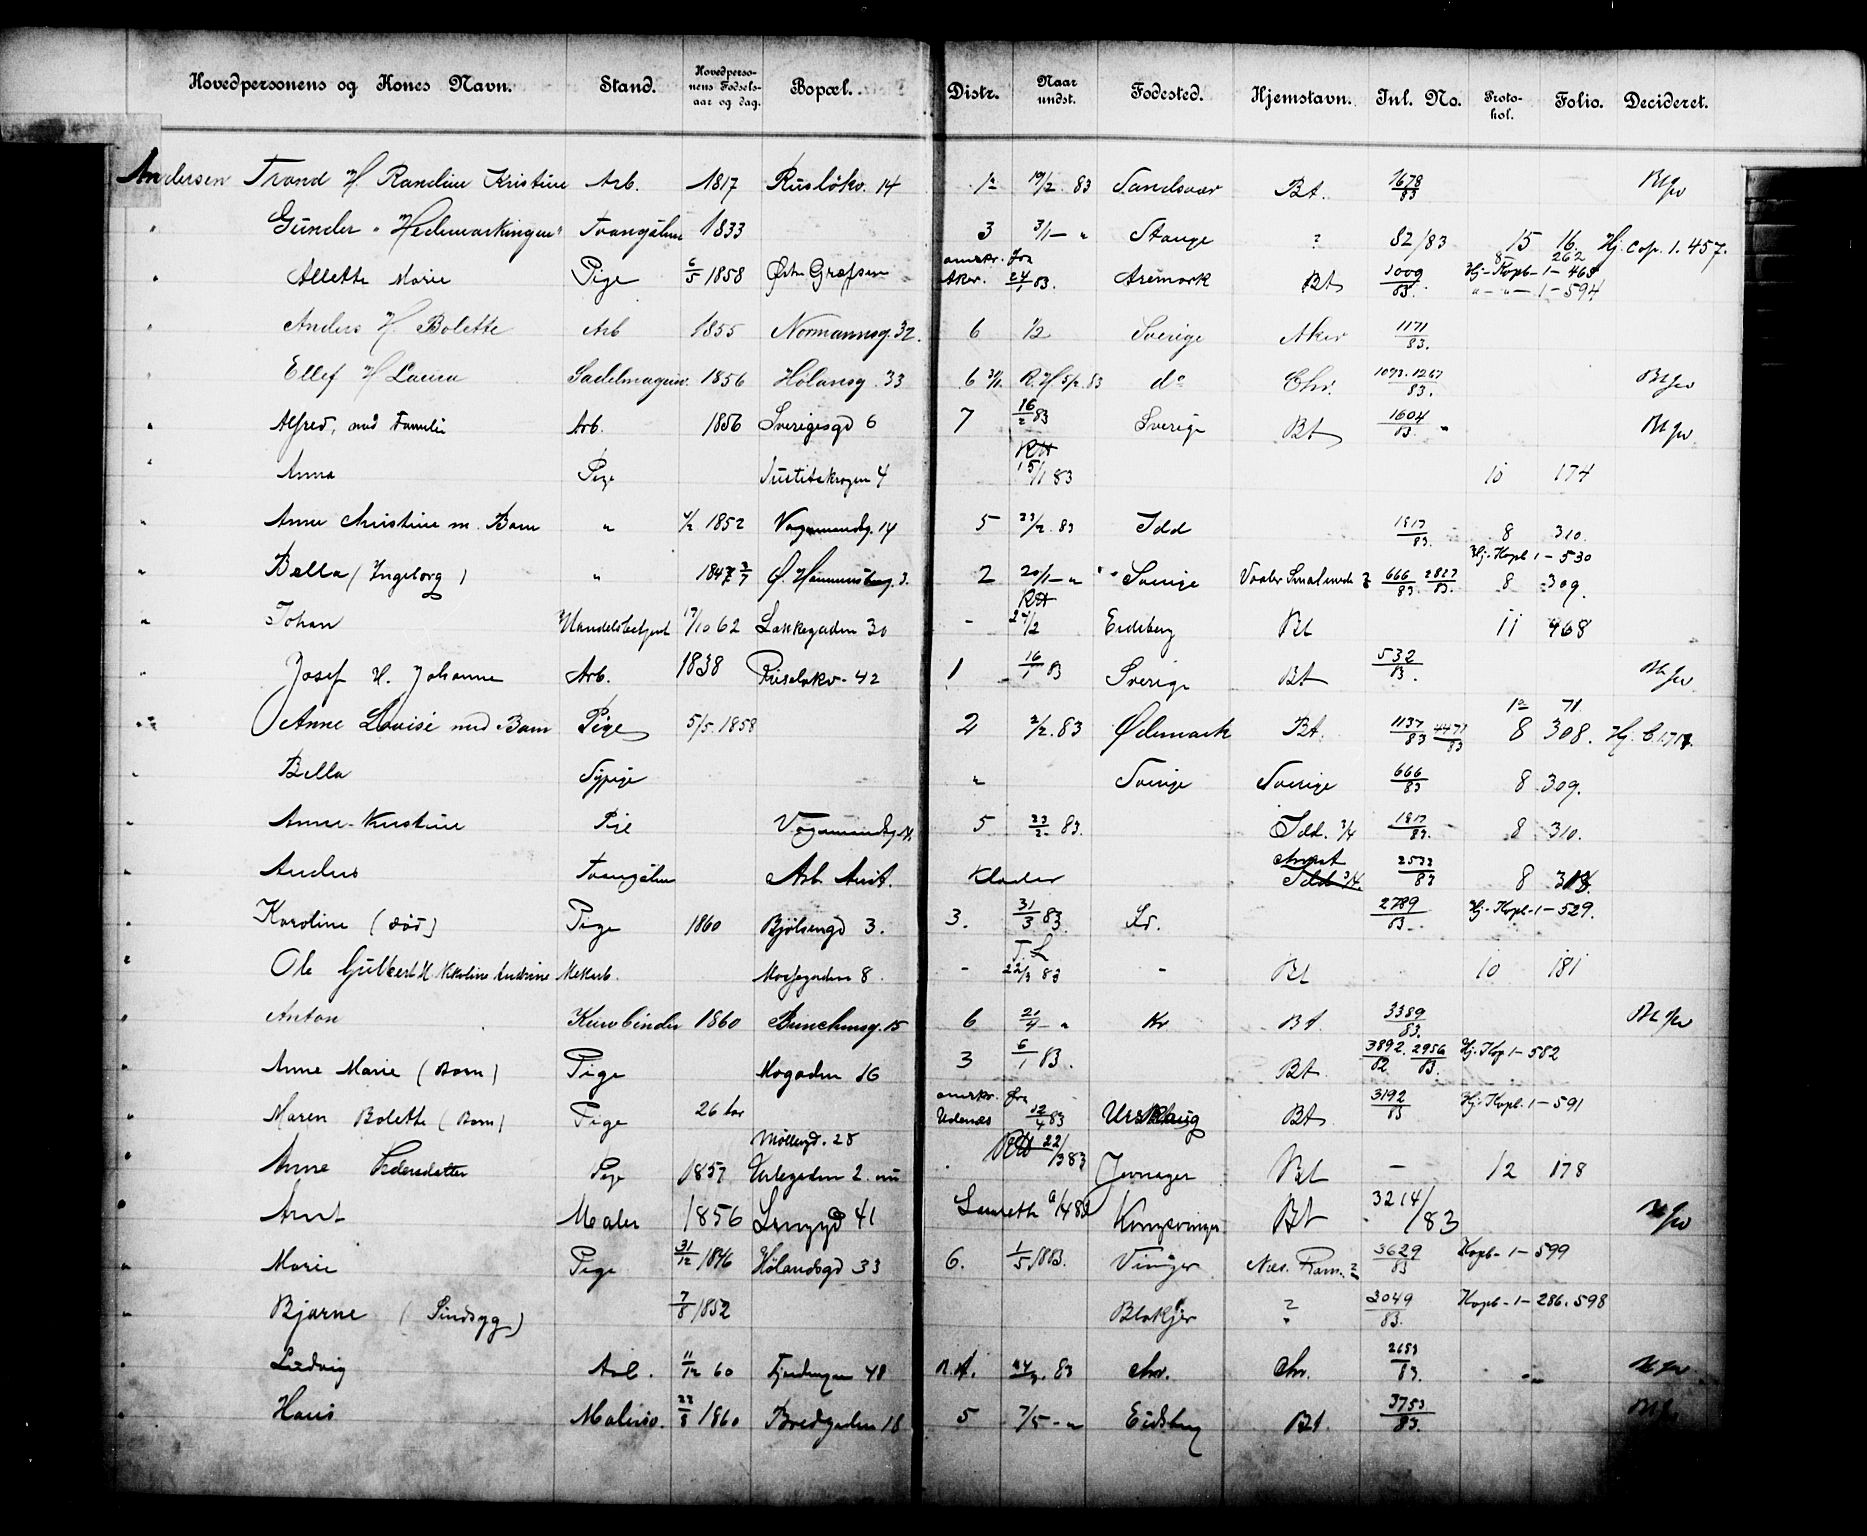 Hovedpersonens og Kones Navn. Stand. Hovedpersonens Fødselsaar og dag. Bopæl. Distr. Naar undst. Fødested. Hjemstavn. Jnl. No. Protokol. Folio. Decideret.
Andersen Trond H Randine Kristine Arb. 1817 Rusløkv. 14 1a 19/2 83 Sandsvær Bt. 1678/83
" Gunder "Hedemarkingen" Tvangslem 1833 3 3/1 - " Stange ? 82/83 15 16 Hj. Cop. 1. 457.
" Allette Marie Pige 6/5 1858 Østre Grefsen omskr. fra Aker. 24/1 83. Aremark Bt 1009/83. 8 262 Hj-Kopb-1-468 " - " - 1-594
" Anders H. Bolette Arb 1855 Normannsg. 32. 6 1/2 Sverige Aker 1171/83.
" Ellef H Laura Sadelmagersv. 1856 Hølansg. 33 6 R. H 5/2. 83 do Chr. 1093.1267/83.
" Alfred, med Familie Arb. 1856 Sverigesgd 6 7 16/2 83 Sverige Bt 1604/83 "
" Anna Pige Justitskrogen 4 RH 15/1 83 10 174
" Anne Christine m. Barn " 4/2 1852 Vognmandsg. 14 5 23/2. 83 Idd 1817/83. 8 310.
" Bella (Ingeborg) " 1847 3/7 Ø. Hammersborg. 3. 2 20/1 - " Sverige Vaaler Smalenene ? 666/83. 2827/83. Hj-Kopb 1-530 8 309.
" Johan Handelsbetjent 17/10 62 Lakkegaden 30 - RH 24/2 Eidsberg Bt 11 468
" Josef H. Johanne Arb. 1838 Ruseløkv- 42 1 16/1 83 Sverige Bt 532/83.
" Anne Lovise med Barn Pige 5/5. 1858 2 2/2. 83 Ødemark Bt. 1137/83 4471/83 12 71 8 308. Hj. C.1.717.
" Bella Sypige " Sverige Sverige 666/83 8 309.
" Anne-Kristine Pie Vognmandsg. 14. 5 23/2. 83. Idd. 3/4 1817/83. 8 310.
" Anders Tvangslem Arb. Anst. Kloster Idd 3/4. 2533/83 8
" Karoline (død) Pige 1860 Bjølsengd 3. 3. 31/3 83. 2789/83 Hj-Kopb-1-529.
" Ole Gulbert H Nikoline Andrine Mekarb. Mossegaden 8. - T. L 22/3 83 - Bt 10 181
" Anton Kurvbinder 1860 Brinchmsg. 15 6 21/4 - " Kr Bt. 3389/83.
" Anne Marie (Barn) Pige Mogaden 16 3 6/1 83. Bt 3892/82. 2956/83. Hj. Kop 1-582
" Maren Bolette (Barn) Pige 26 Aar omskr. fra Udenæs 12/4 83 Urskoug Bt 3192/83 Hj. Kopb. 1-591
" Anne Pedersdatter Pige 1857 Møllergd. 28 Urtegaden 2. RH 22/3 83 Jevnager Bt - 12 178
" Arnt Maler 1856 41 Kongsvinger Bt 3214/83
" Marie Pige 31/12 1846 Hølandsgd 33 6. 1/5 1883. Vinger Næs. Rom. ? 3629/83 Kopb-1-599
" Bjarne (Sindssyg) 7/8 1852 Blakjer ? 3049/83. Kopb-1-286. 598
" Ludvig Arb. 11/12 60 Fjerdingen 48 83 Chr. Chr. 2653/83. "
" Hans Malersv. 23/8 1860 Bredgaden 18 5 7/5 - " Eidsberg Bt. 3753/83.